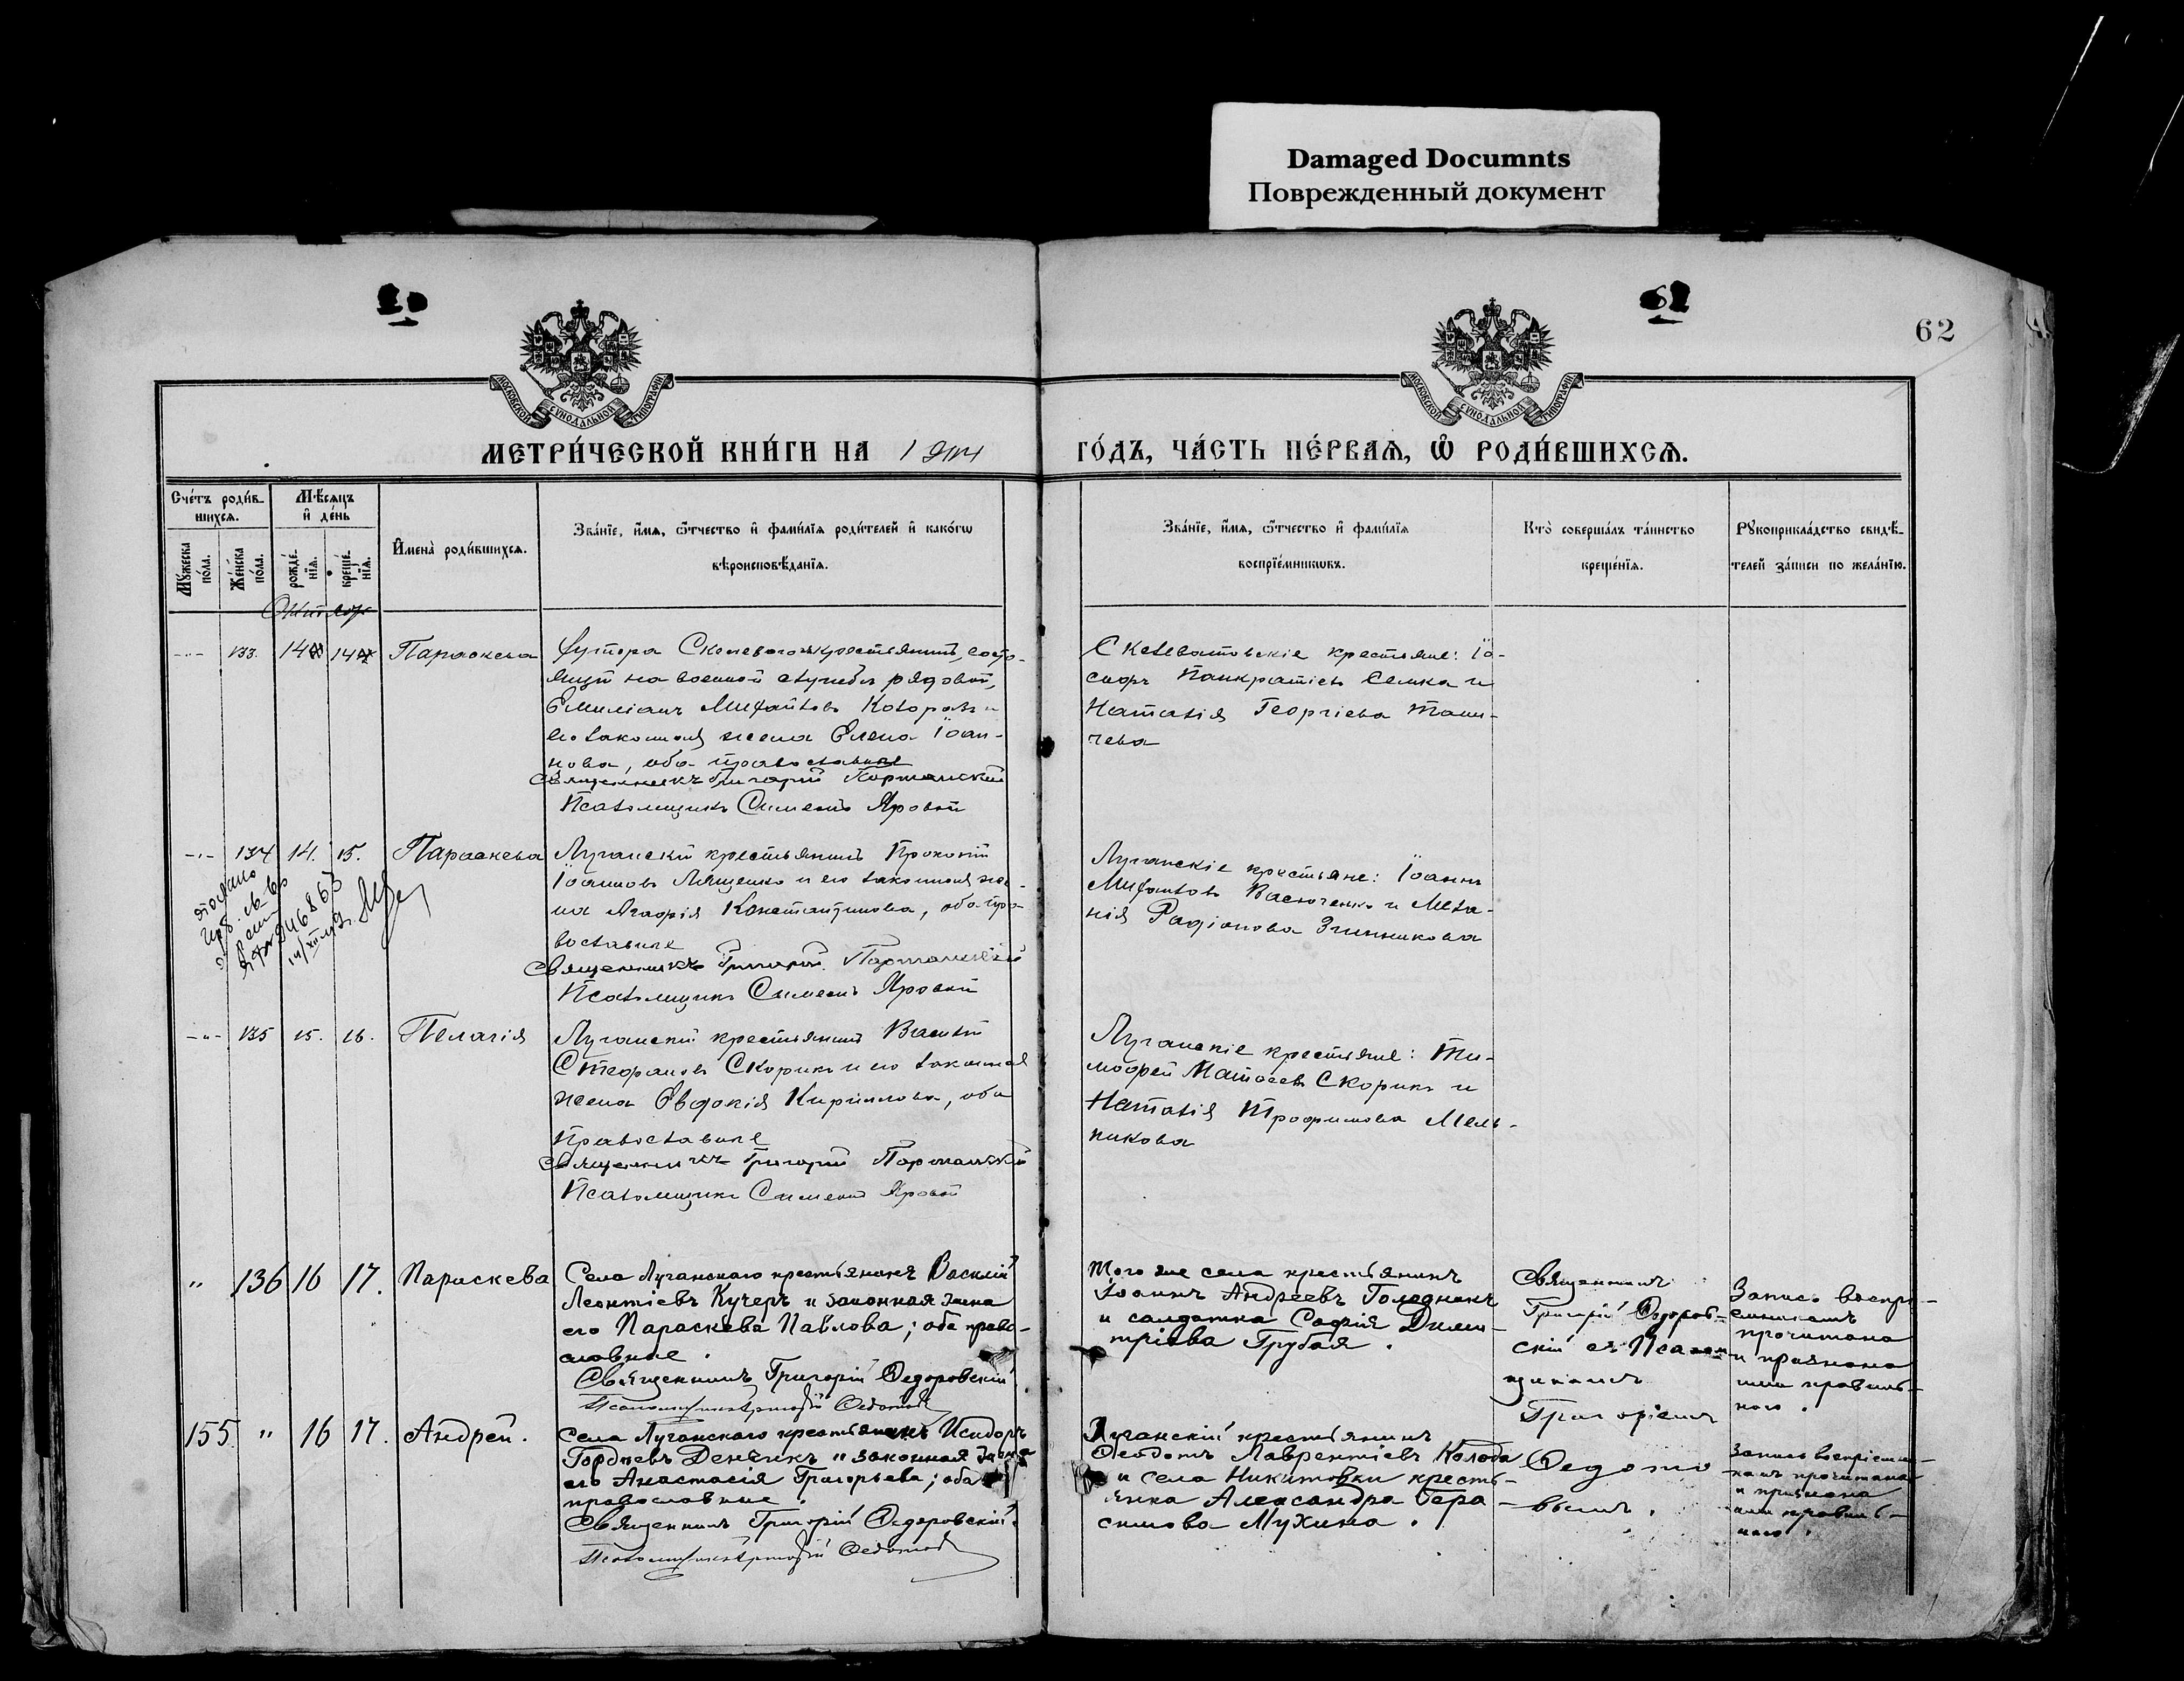 Damaged Documnts
Поврежденный документ
62
МОСКОВСКОЙ СѴНОДАЛЬНОЙ ТИПОГРАФІИ
МОСКОВСКОЙ СѴНОДАЛЬНОЙ ТИПОГРАФІИ
МЕТРИ́ЧЕСКОЙ КНИ́ГИ НА
ГО́ДЪ, ЧА́СТЬ ПЕ́РВАѦ, Ѡ҆ РОДИ́ВШИХСѦ.
Сче́тъ роди́в-
шихсѧ.
Мѣсѧцъ
и҆ де́нь
Мꙋжеска по́ла.
Же́нска по́ла.
рожде́нїѧ.
креще́нїѧ.
И҆мена̀ роди́вшихсѧ.
Зва́нїе, и҆́мѧ, ѻ҆́тчество и҆ фами́лїѧ роди́телей и҆ како́гѡ
вѣроисповѣ́данїѧ.
Зва́нїе, и҆́мѧ, ѻ҆́тчество и҆ фами́лїѧ
воспрїе́мникѡвъ.
Кто̀ соверша́лъ та́инство
креще́нїѧ.
Рꙋкоприкла́дство свидѣ́-
телей за́писи по жела́нїю.
133. 14 14 Параскева
Хутора крестьянинъ, состо-
ящій на военной службѣ рядовой,
Емиліанъ Михайловъ и
его законная жена Елена Іоан-
нова, оба православные
Священникъ Григорій
Псаломщикъ Симеонъ Яровой
Скелеватовскіе крестьяне: Іо-
сифъ Панкратіевъ и
Наталія Георгіева
чева
134 14. 15. Параскева
Луганскій крестьянинъ Прокопій
Іоанновъ Лященко и его законная же-
на Агафія Константинова, оба пра-
вославные
Священникъ Григорій
Псаломщикъ Симеонъ Яровой
Луганскіе крестьяне: Іоаннъ
Михайловъ Васюченко и Мела-
нія Родіонова Зинникова
246863
135 15. 16. Пелагія
Луганскій крестьянинъ Василій
Стефановъ Скорикъ и его законная
жена Евдокія Кириллова, оба
Православные
Священникъ Григорій
Псаломщикъ Симеонъ Яровой
Луганскіе крестьяне: Ти-
мофей Матѳеевъ Скорикъ и
Наталія Трофимова Мель-
никова
" 136 16 17. Параскева
Села Луганскаго крестьянинъ Василій
Леонтіевъ Кучеръ и законная жена
его Параскева Павлова; оба право-
славные.
Священникъ Григорій Ѳедоровскій
Псаломщикъ Григорій Ѳедотовъ
Того же села крестьянинъ
Іоаннъ Андреевъ Голеднякъ
и солдатка Софія Дими-
тріева Грубая.
Священникъ
Григорій Ѳедоров-
скій съ Псалом-
щикомъ
Григоріемъ
Ѳедото-
вымъ.
Запись воспрі-
емникамъ
прочитана
и признана
ими правиль-
ною.
155. " 16 17. Андрей.
Села Луганскаго крестьянинъ Исидоръ
Гордіевъ Денчикъ и законная жена
его Анастасія Григорьева; оба
православные.
Священникъ Григорій Ѳедоровскій.
Псаломщикъ Григорій Ѳедотовъ
Луганскій крестьянинъ
Ѳеодотъ Лаврентіевъ Колода
и села Никитовки кресть-
янка Александра Гера-
симова Мухина.
Запись воспріемни-
камъ прочитана
и признана
ими правиль-
ною.